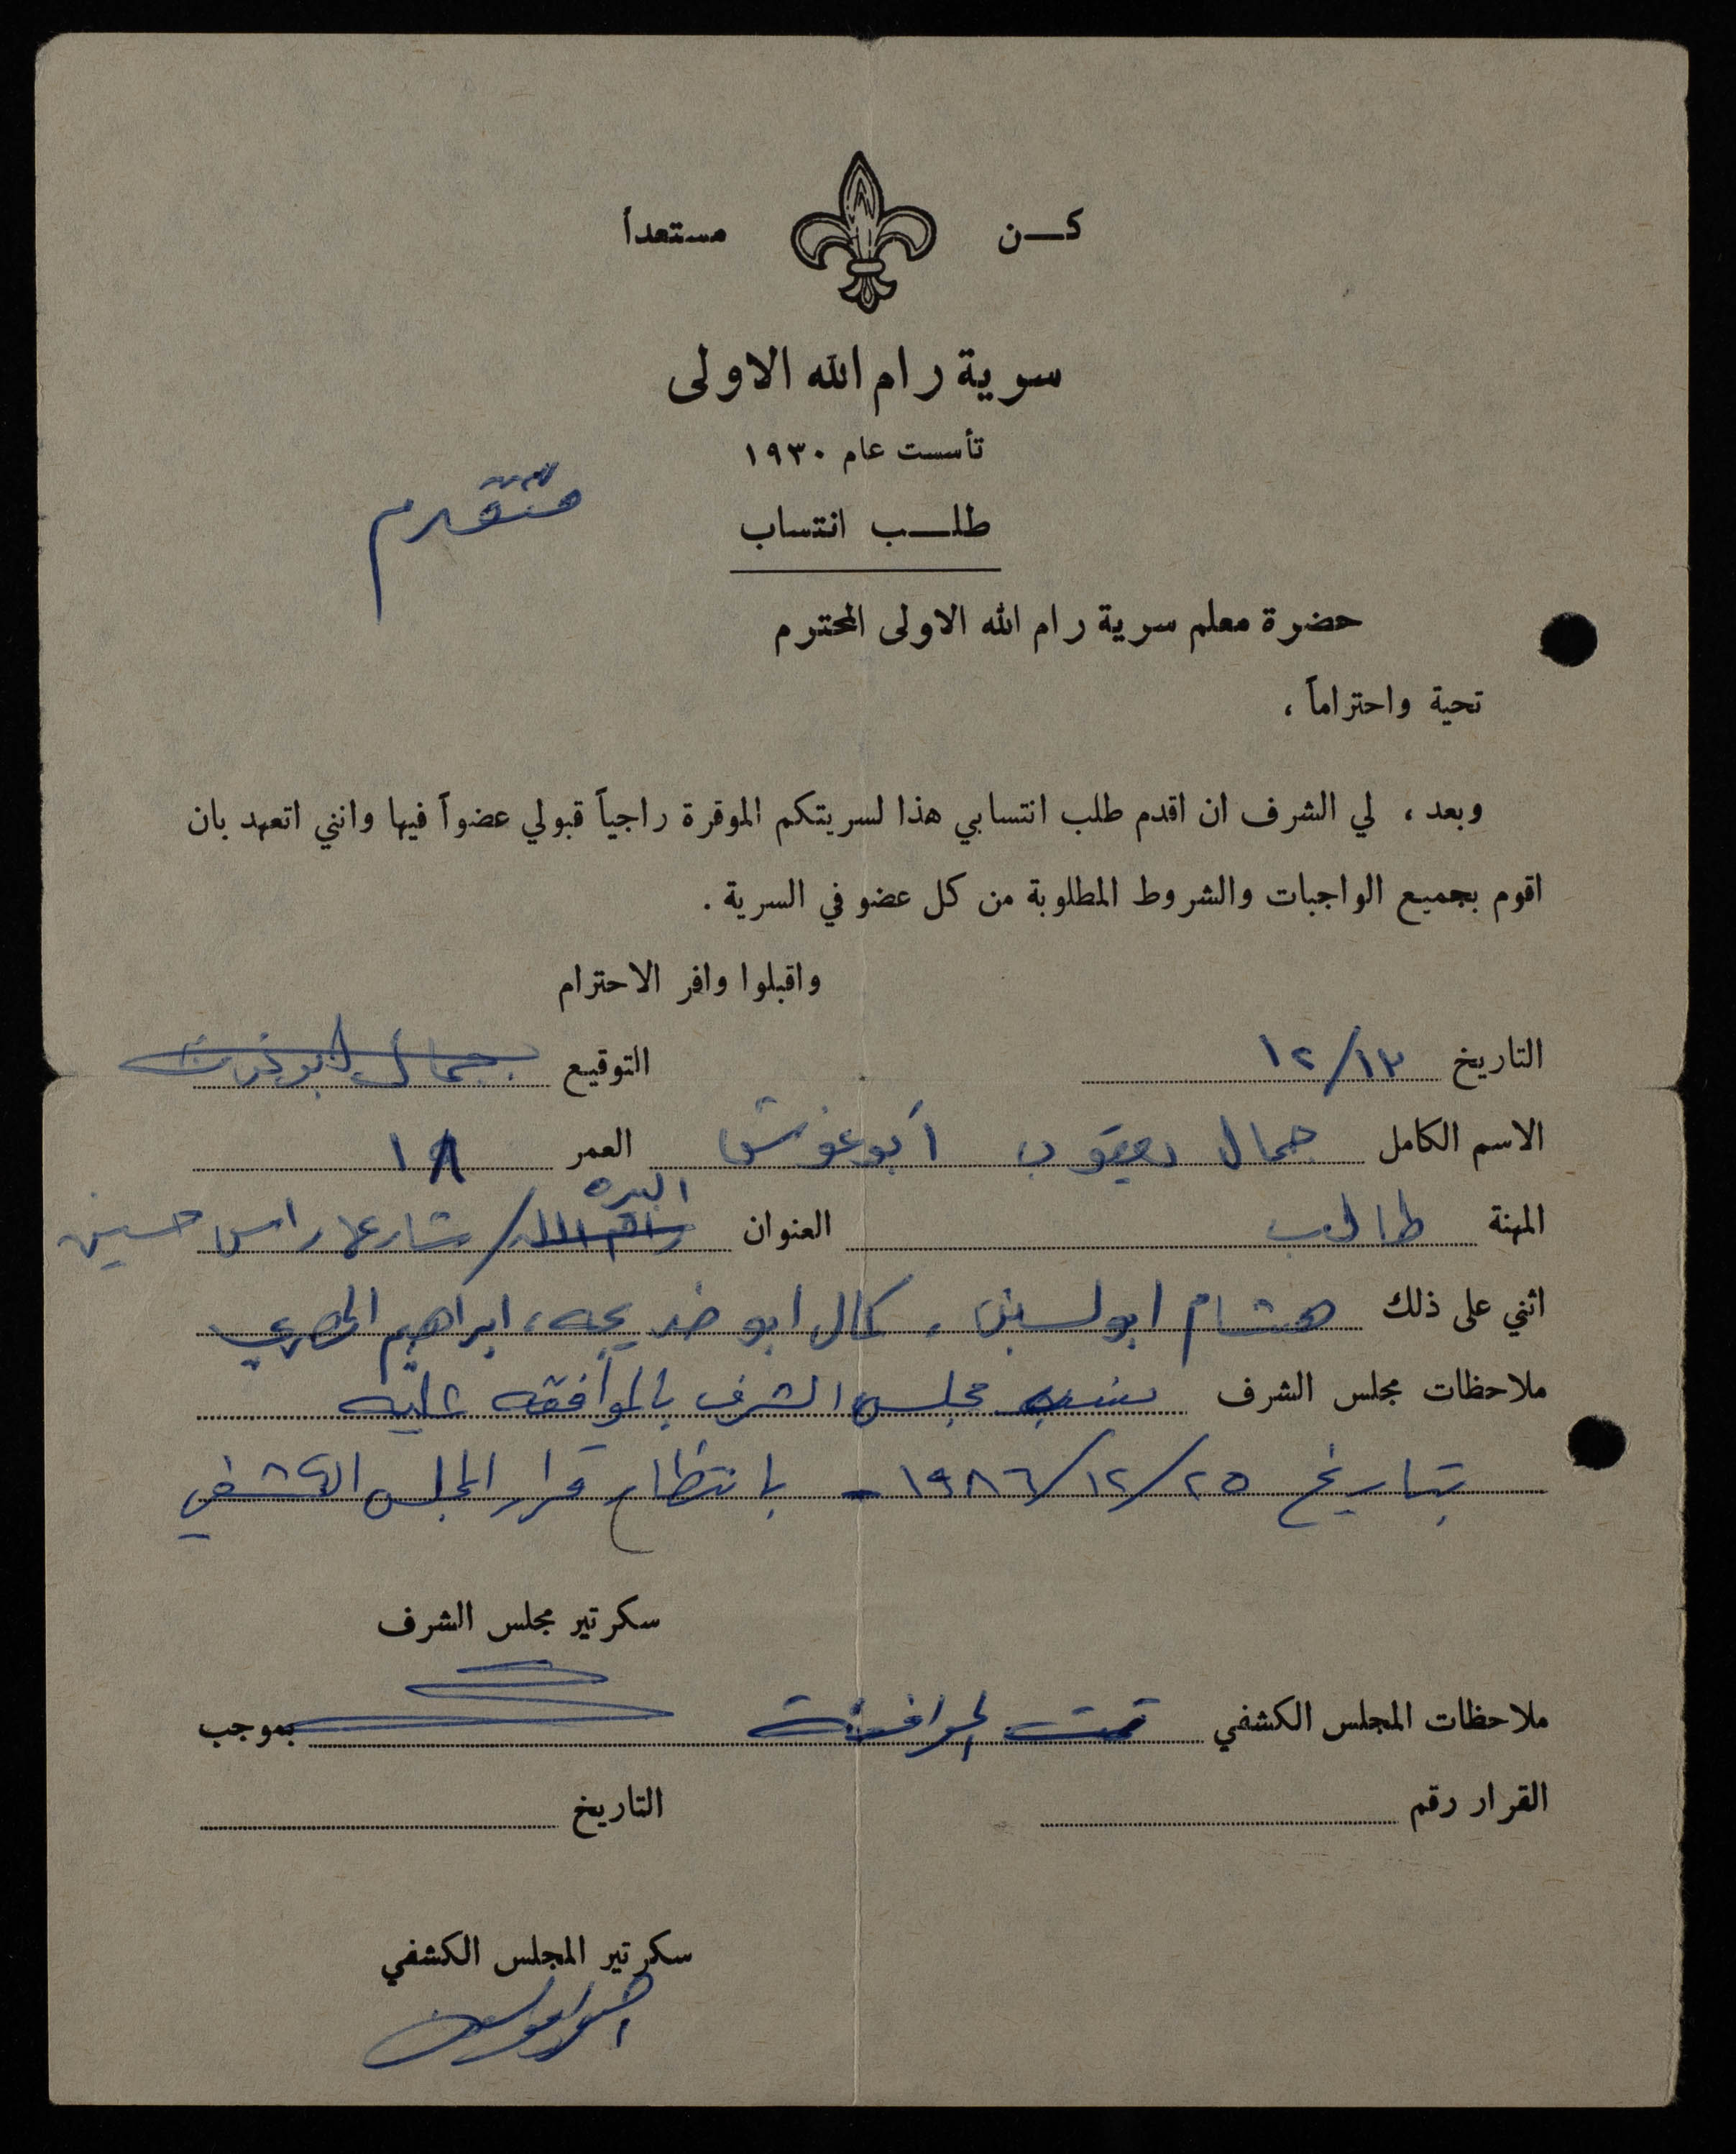 كـن مستعداً
سرية رام الله الاولى
تأسست عام ١٩٣٠
متقدم
طلـب انتساب
حضرة معلم سرية رام الله الاولى المحترم
تحية واحتراماً ،
وبعد ، لي الشرف ان اقدم طلب انتسابي هذا لسريتكم الموقرة راجياً قبولي عضواً فيها وانني اتعهد بان
اقوم بجميع الواجبات والشروط المطلوبة من كل عضو في السرية .
واقبلوا وافر الاحترام
التاريخ ١٢/١٣ التوقيع جمال ابوغوش
الاسم الكامل جمال يعقوب أبوغوش العمر ١٨
المهنة طالب العنوان رام الله البيره / شارع راس حسين
اثني على ذلك هشام ابولبن ، كمال ابو خديجه ، ابراهيم
ملاحظات مجلس الشرف ينسب مجلس الشرف بالموافقه عليه
بتاريخ ٢٥/١٢/١٩٨٦ - بانتظار قرار المجلس الكشفي
سكرتير مجلس الشرف
ملاحظات المجلس الكشفي تمت الموافقة بموجب
القرار رقم التاريخ
سكرتير المجلس الكشفي